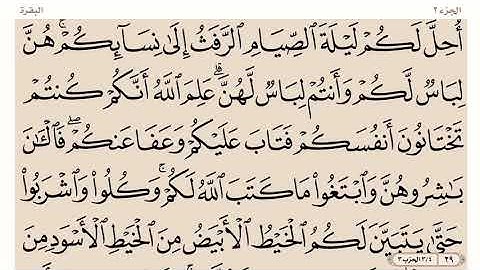 الجزء ٢ البقرة
أُحِلَّ لَكُمۡ لَيۡلَةَ ٱلصِّيَامِ ٱلرَّفَثُ إِلَىٰ نِسَآئِكُمۡۚ هُنَّ
لِبَاسٞ لَّكُمۡ وَأَنتُمۡ لِبَاسٞ لَّهُنَّۗ عَلِمَ ٱللَّهُ أَنَّكُمۡ كُنتُمۡ
تَخۡتَانُونَ أَنفُسَكُمۡ فَتَابَ عَلَيۡكُمۡ وَعَفَا عَنكُمۡۖ فَٱلۡـَٰٔنَ
بَٰشِرُوهُنَّ وَٱبۡتَغُواْ مَا كَتَبَ ٱللَّهُ لَكُمۡۚ وَكُلُواْ وَٱشۡرَبُواْ
حَتَّىٰ يَتَبَيَّنَ لَكُمُ ٱلۡخَيۡطُ ٱلۡأَبۡيَضُ مِنَ ٱلۡخَيۡطِ ٱلۡأَسۡوَدِ مِنَ
٢٩ ٣/٤ الحزب ٣